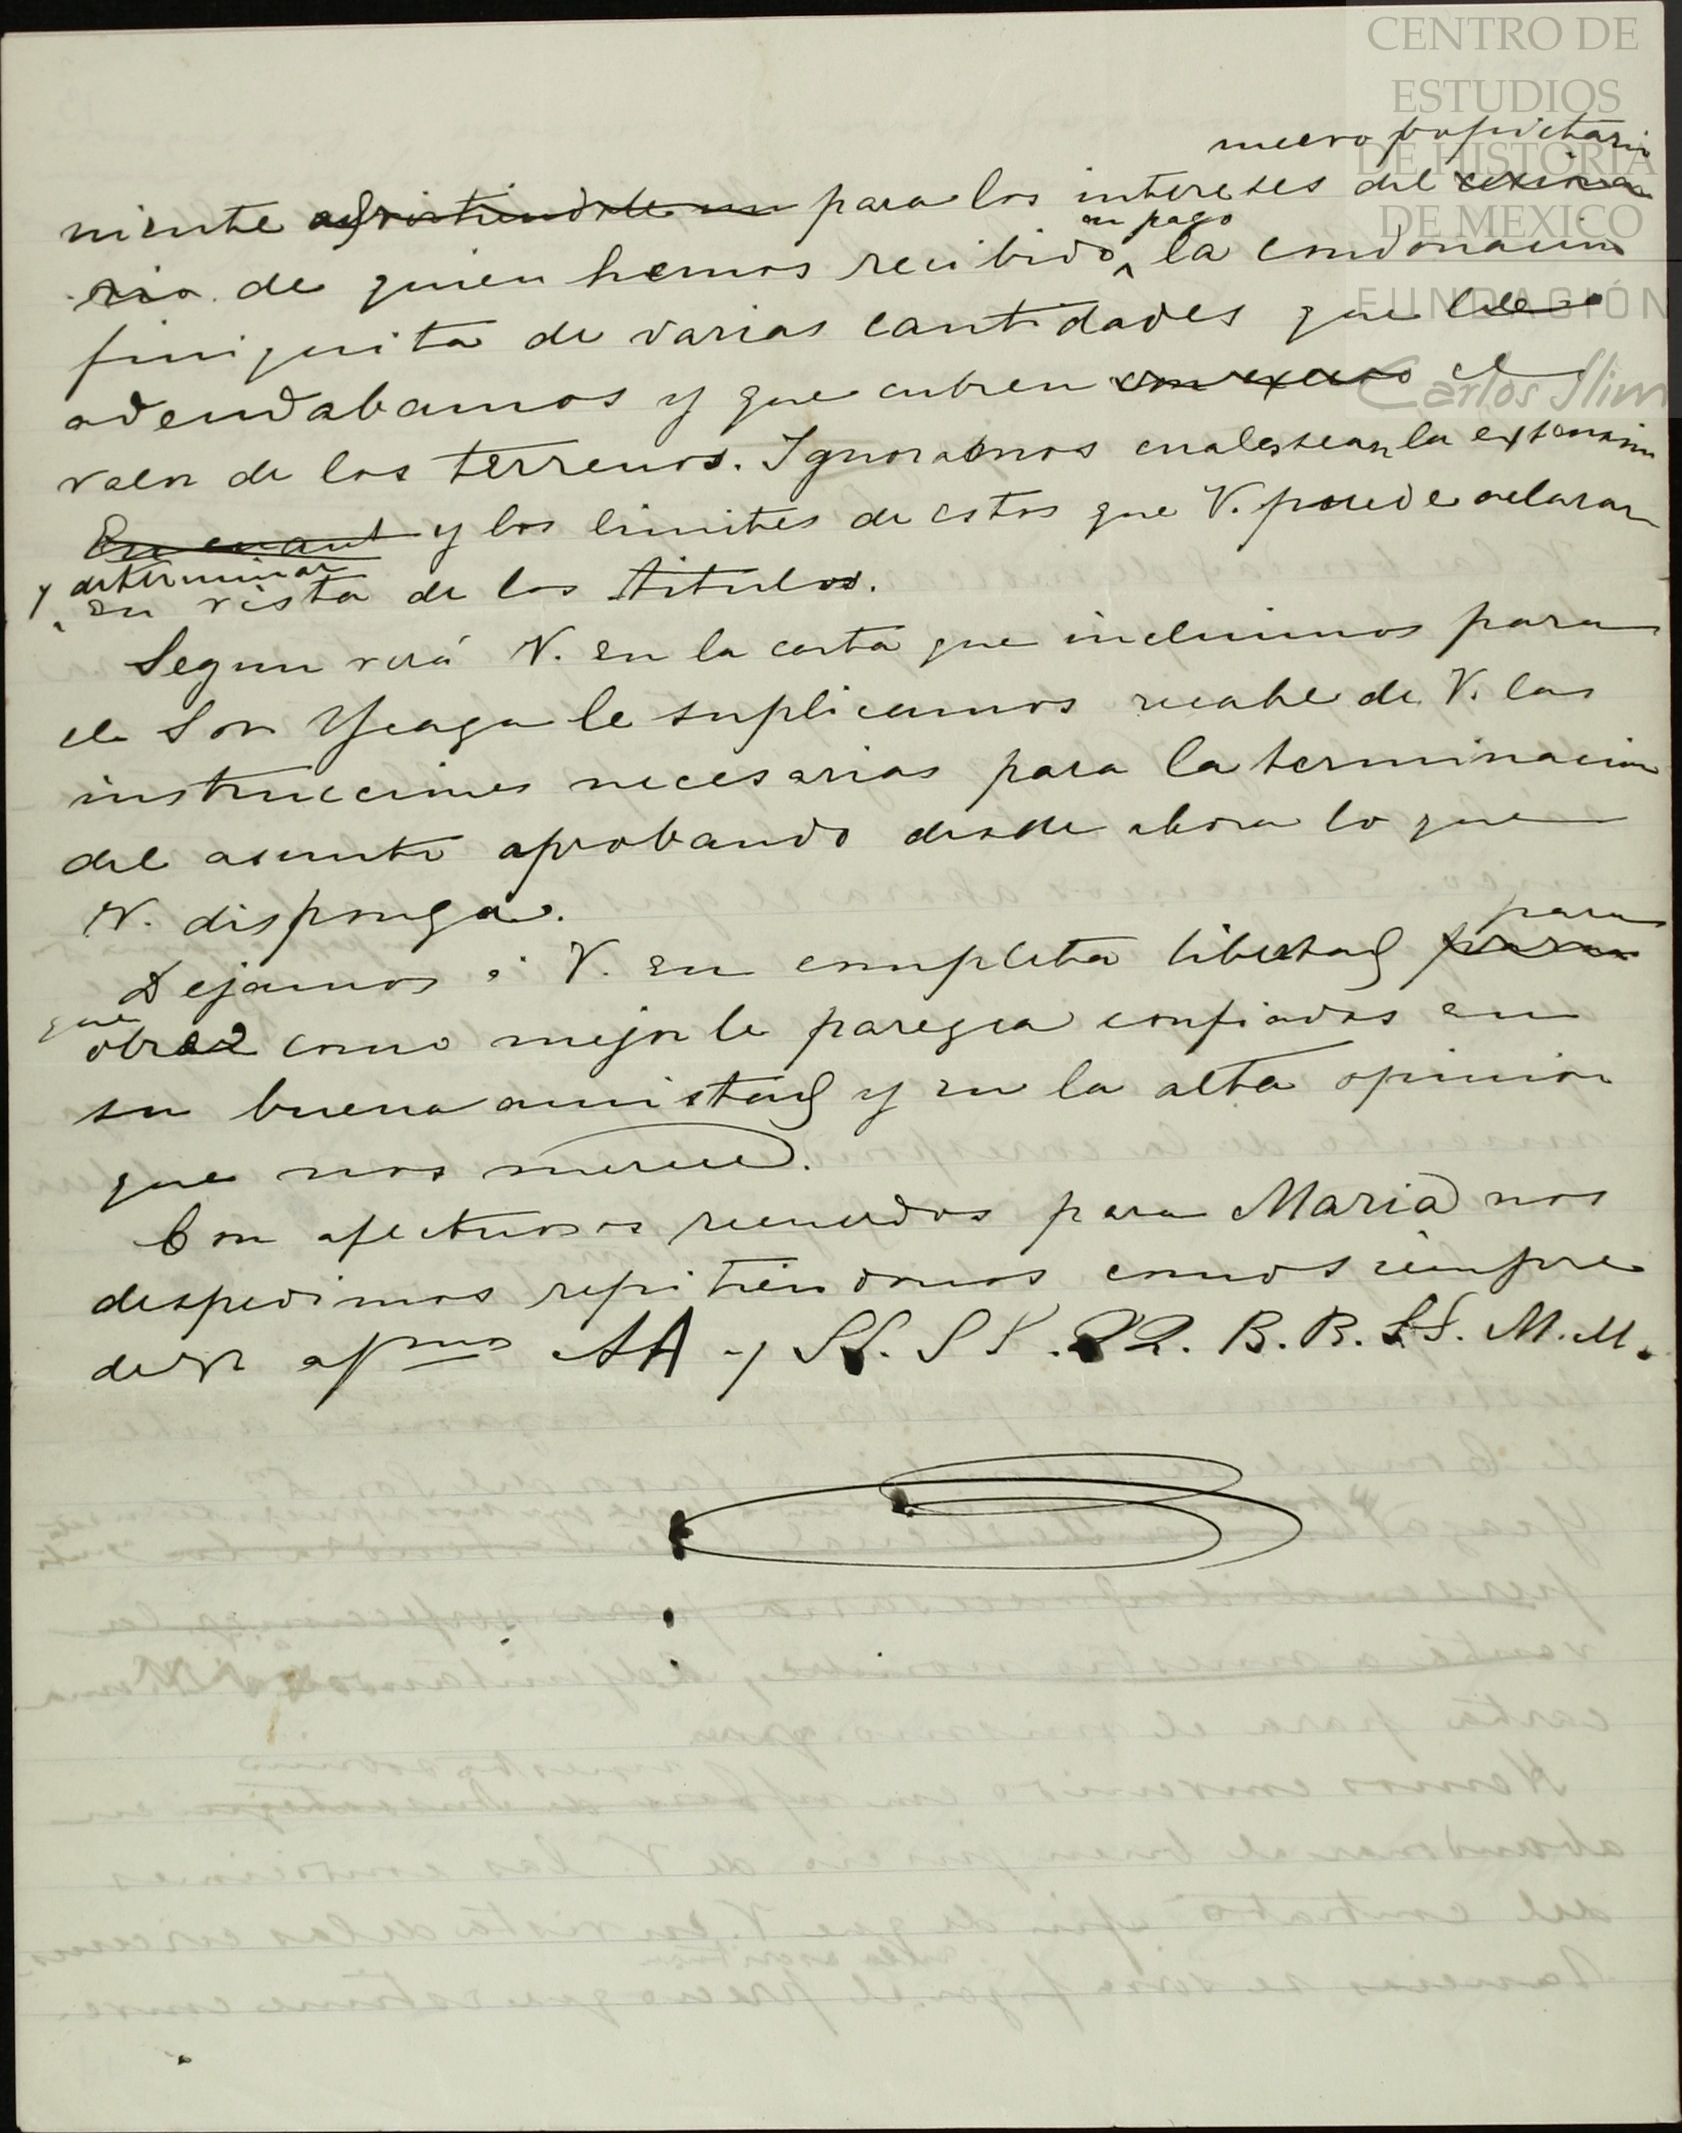 CENTRO DE
ESTUDIOS
DE HISTORIA
DE MEXICO
FUNDACIÓN
Carlos Slim
nuevo propietario
niente para los intereses del
en pago
rio. de quien hemos recibido la condonacion
finiquita de varias cantidades que le
adeudabamos y que cubren con exceso el
valor de los terrenos. Ignoramos cuales sean la extension
En cuant y los limites de estos que V. puede aclarar
y determinar
en vista de los titulos.
Segun verá V. en la carta que incluimos para
el Sor Ycaza le suplicamos recabe de V. las
instrucciones necesarias para la terminacion
del asunto aprobando desde ahora lo que
V. disponga.
para
Dejamos á V. en completa libertad para
que
obrar como mejor le parezca confiados en
su buena amistad y en la alta opinion
que nos merece.
Con afectuosos recuerdos para Maria nos
despedimos repitiendonos como siempre
de V. afmos AA y SS. SS. QQ. B. B. SS. M. M.